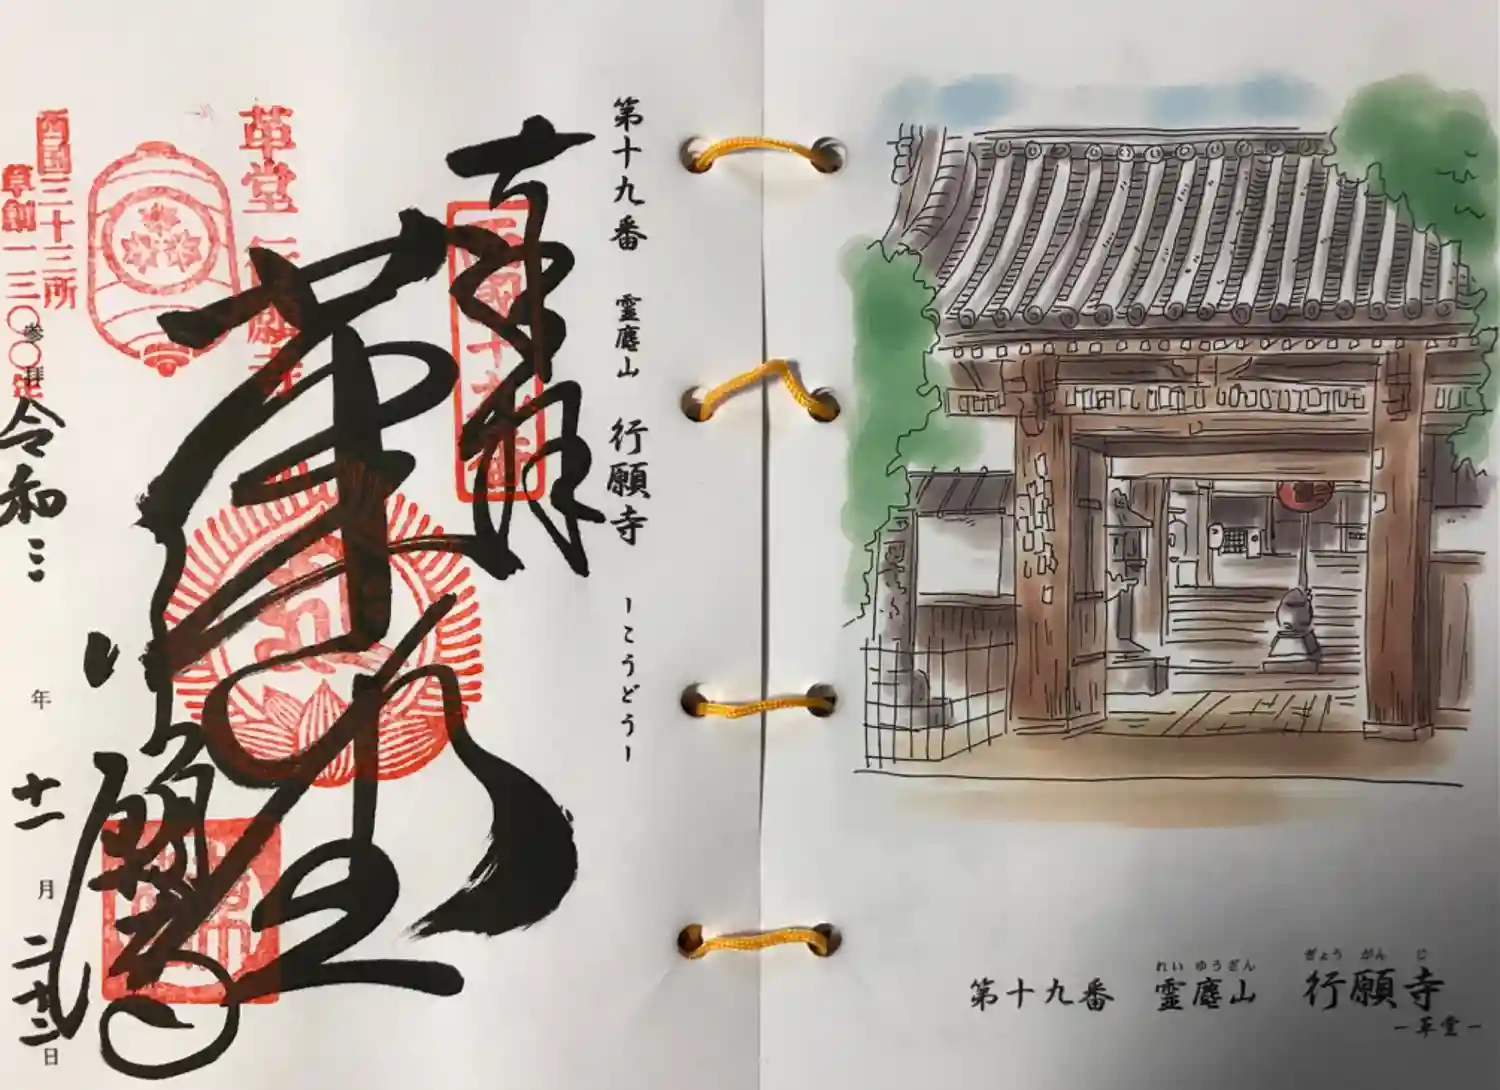 第十九番 霊麀山 行願寺 -こうどう-
奉拝
革堂
行願寺
西国十九番
革堂 行願寺
西国三十三所
草創一三〇〇年
参拝
令和三年十一月二十二日
れいゆうざん ぎょうがんじ
第十九番 霊麀山 行願寺
-革堂-